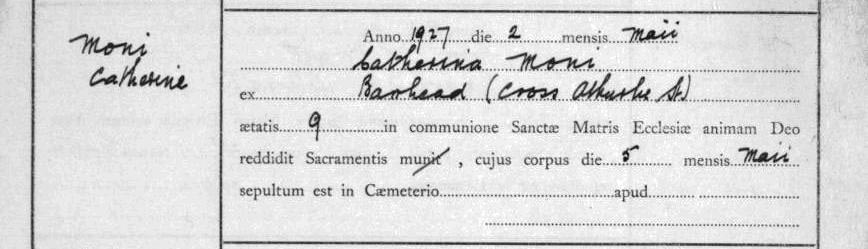 Moni
Catherine
Anno 1927 die 2 mensis Maii
Catherina Moni
ex Barrhead (Cross Arthurlie St.)
ætatis 9 in communione Sanctæ Matris Ecclesiæ animam Deo
reddidit Sacramentis munit , cujus corpus die 5 mensis Maii
sepultum est in Cæmeterio apud